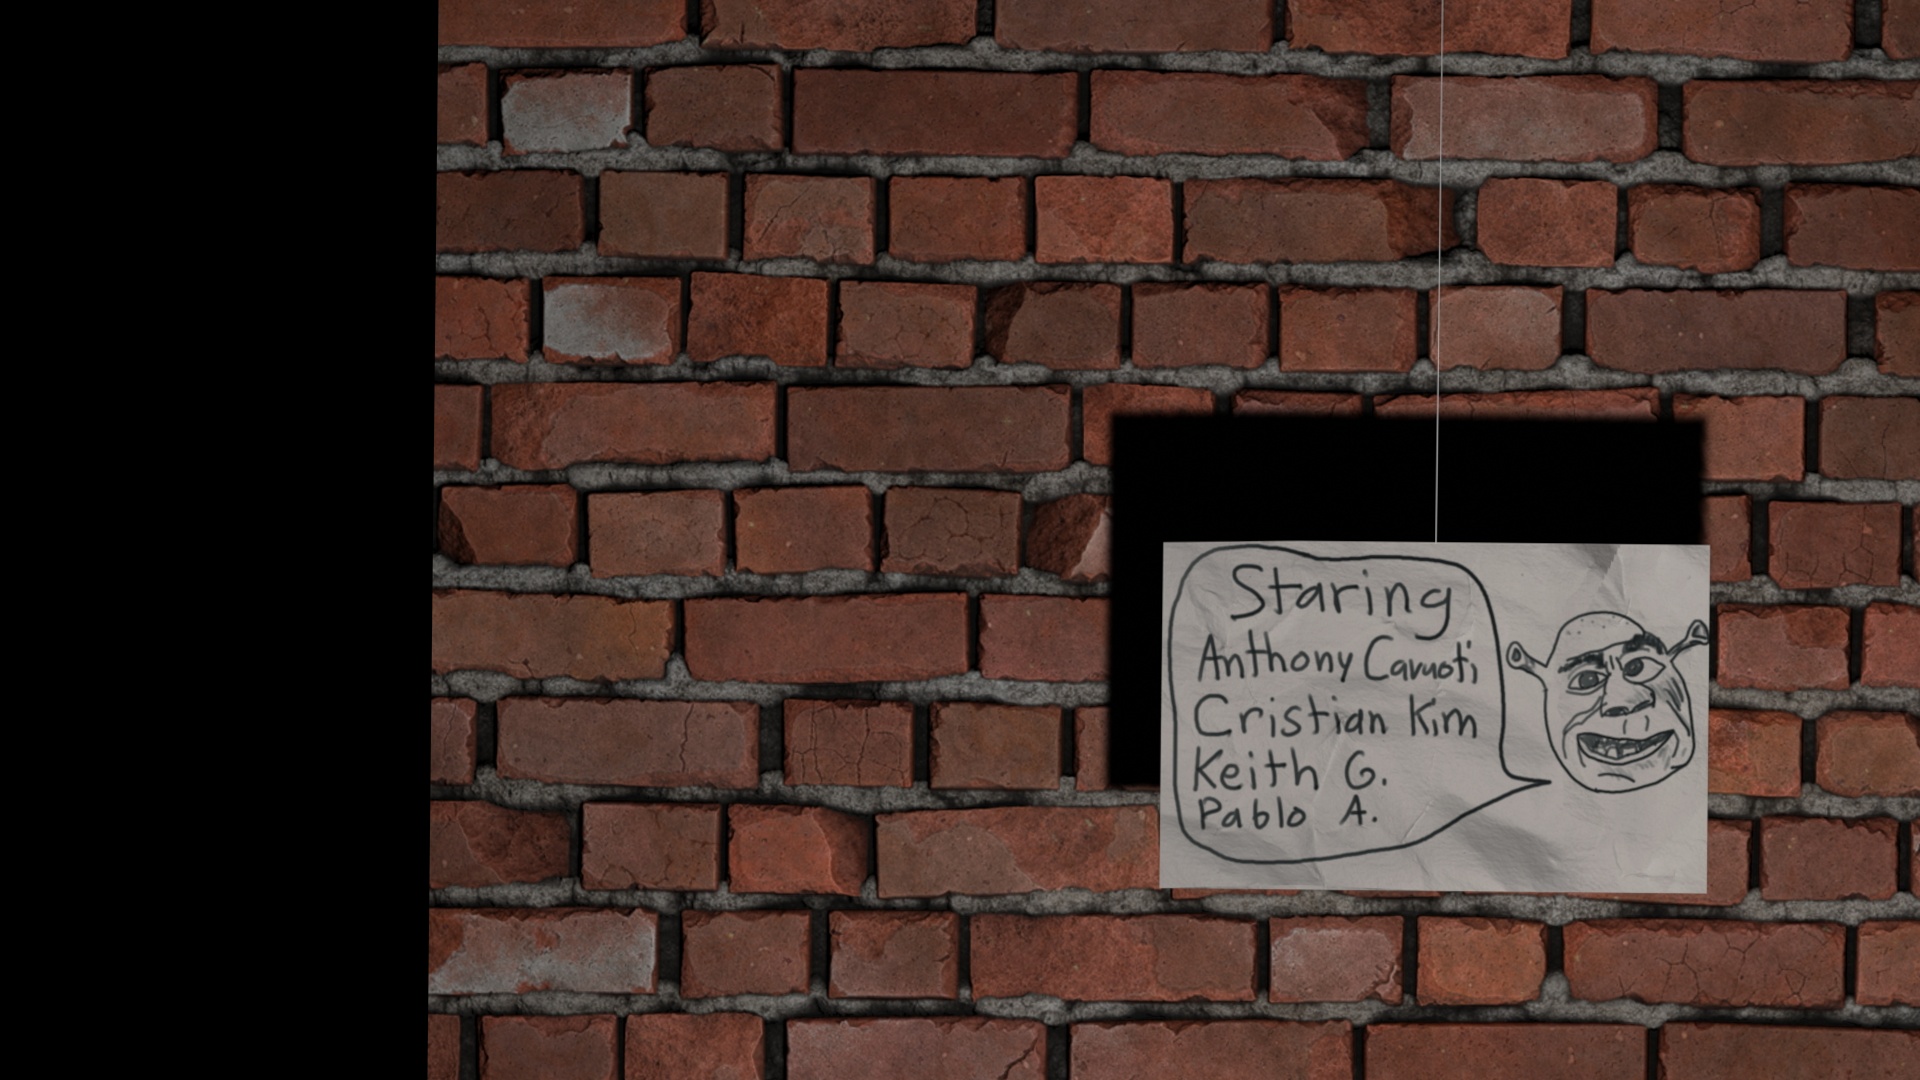 Staring
Anthony
Cristian Kim
Keith G.
Pablo A.